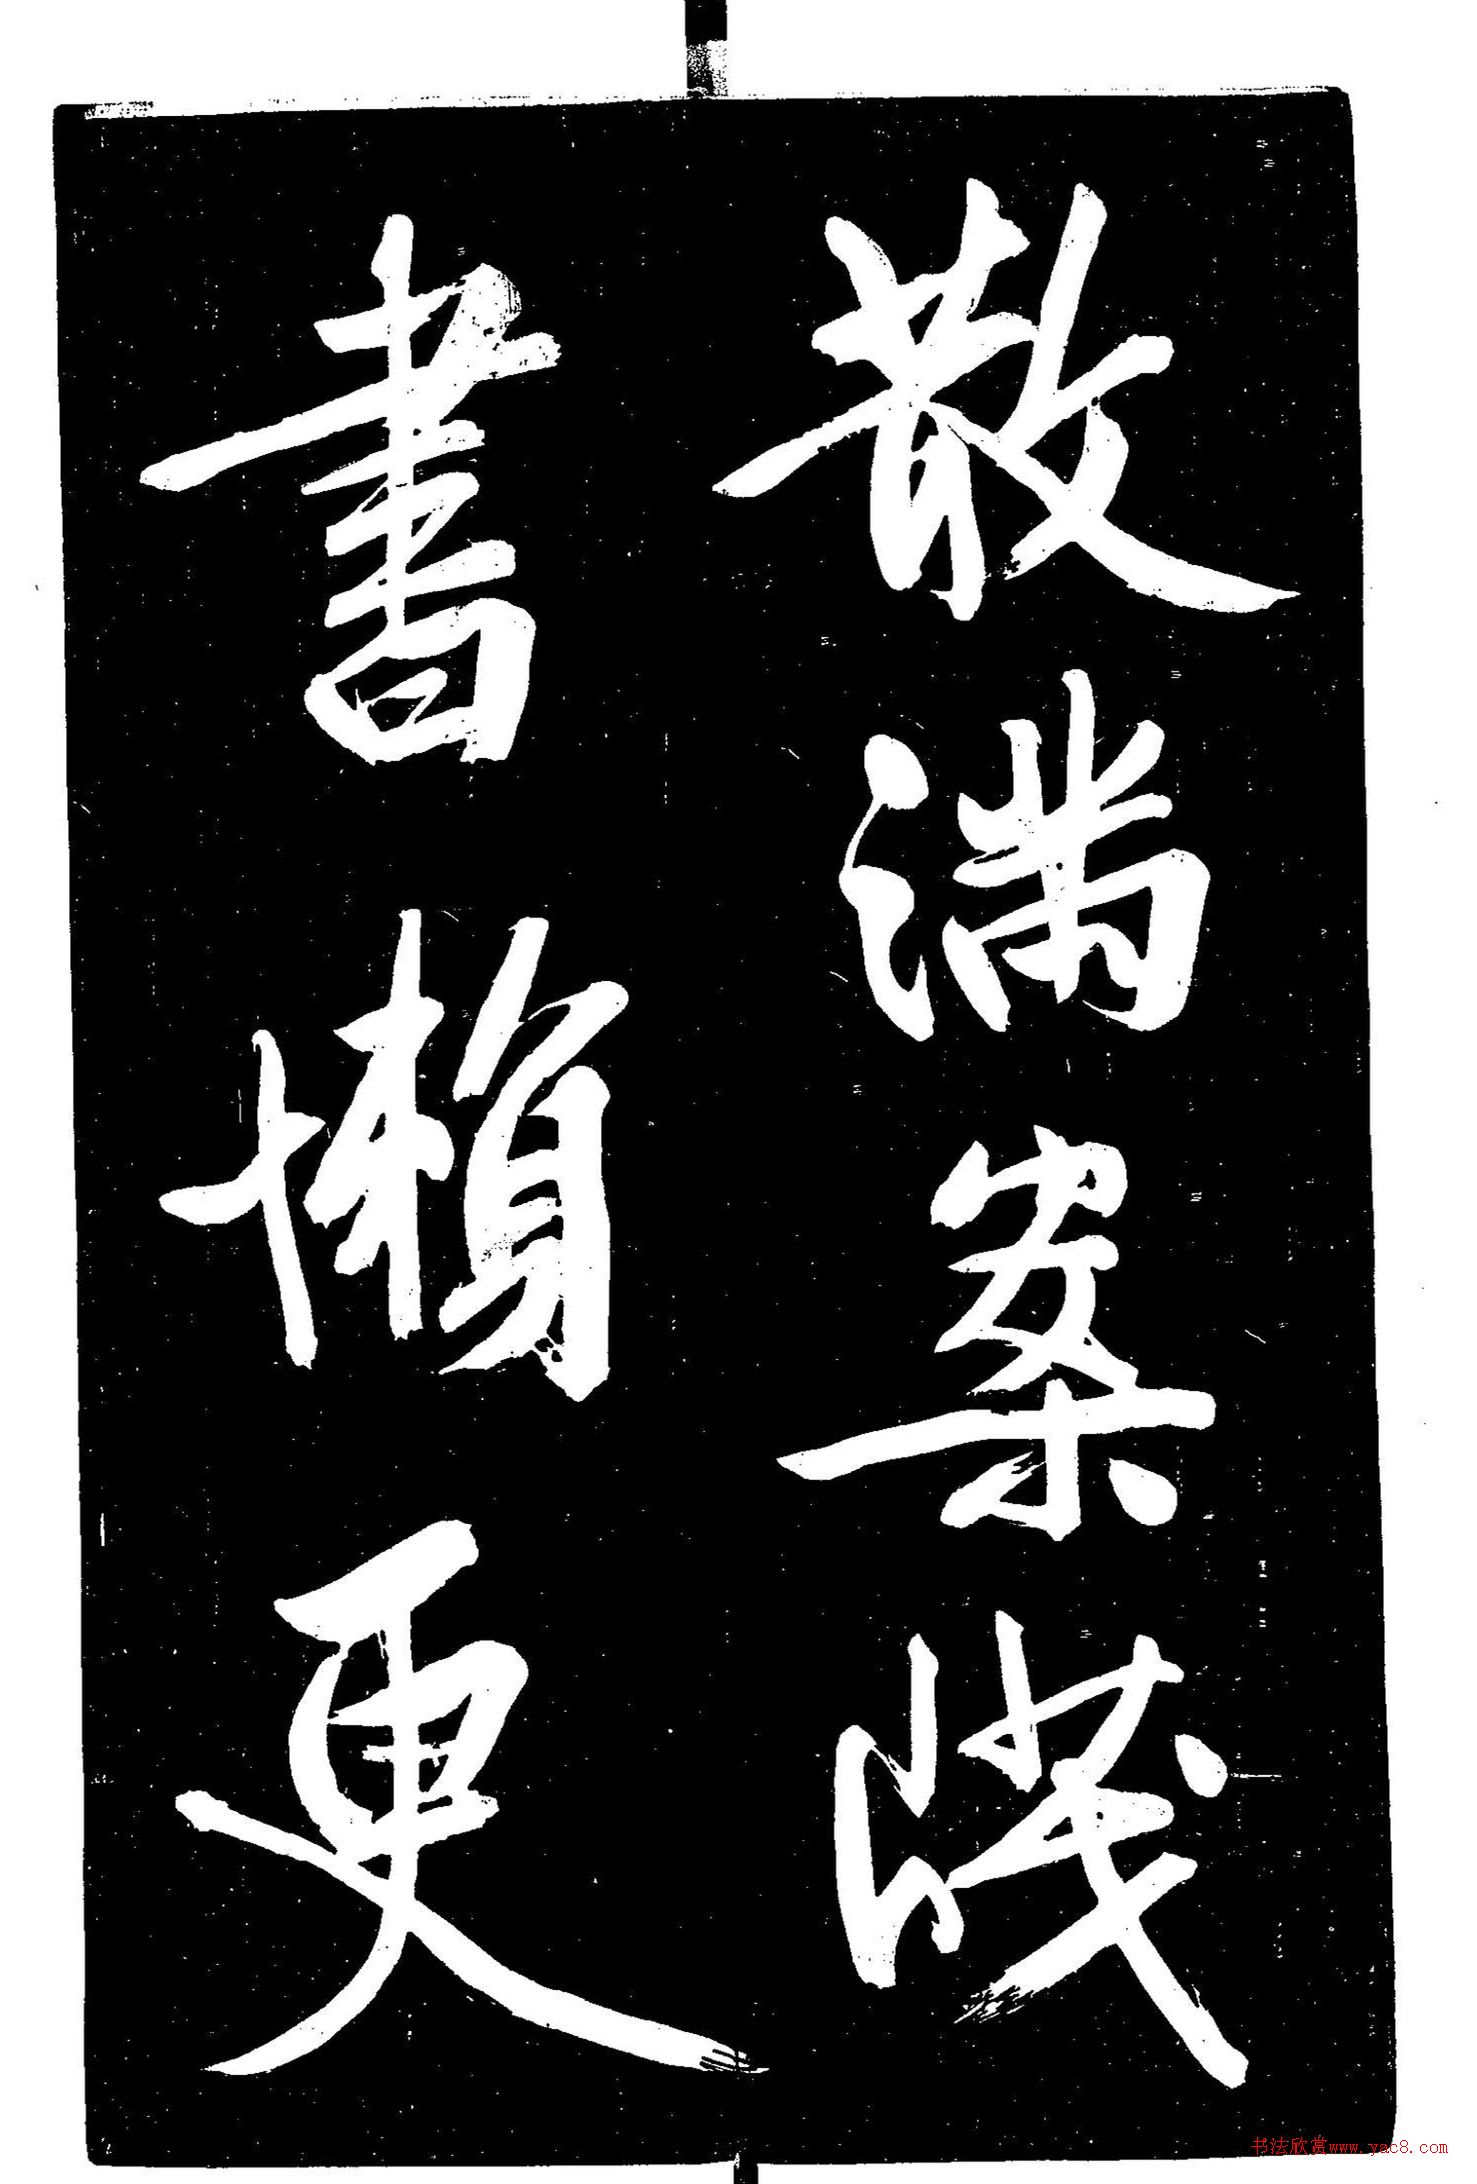 散满案牋
書懶更
书法欣赏www.yac8.com